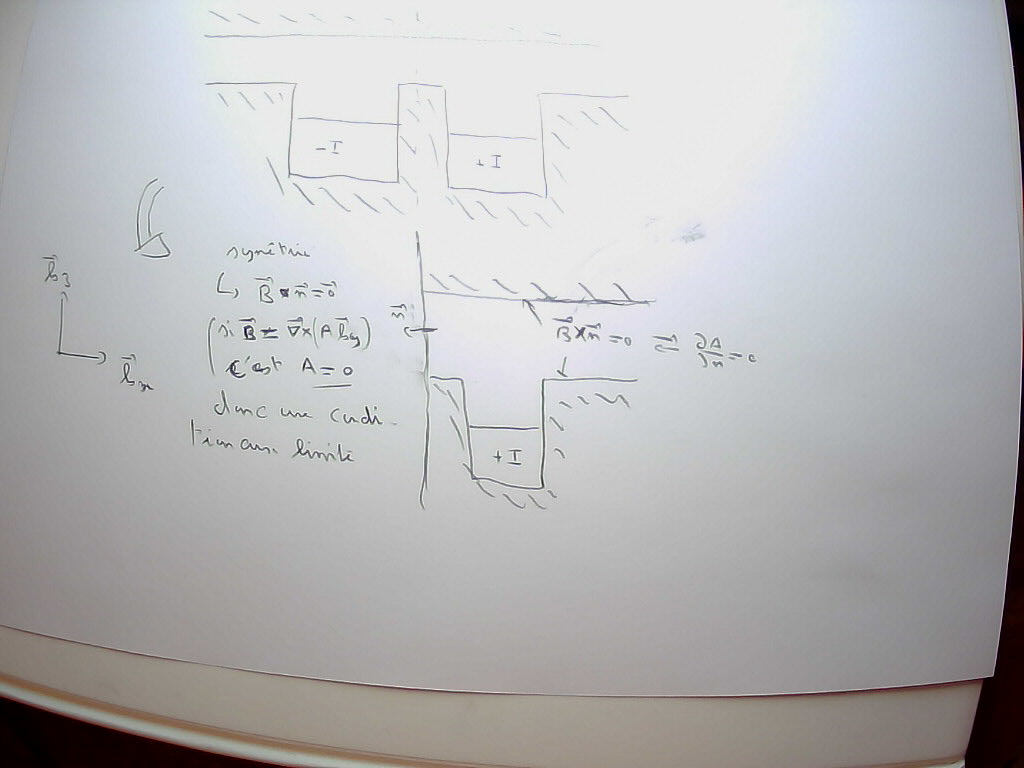 -I
+I
symétrie
↳ B⃗ • n⃗ = 0⃗
(si B⃗ = ∇⃗×(A b⃗y)
c'est A = 0
donc une condi-
tion aux limite
b⃗z
b⃗x
n⃗
B⃗ × n⃗ = 0 ⇒ ∂A/∂n = 0
+I